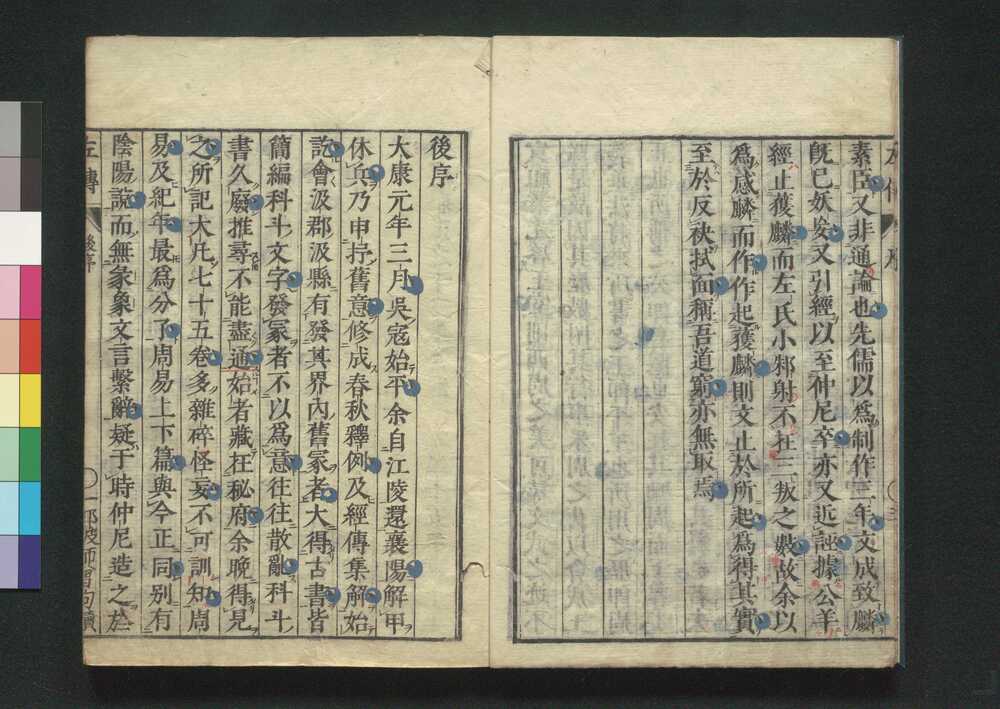 素臣又非通論也先儒以爲制作三年文成致麟
既已妖妄又引經以至仲尼卒亦又近誣據公羊
經止獲麟而左氏小邾射不在三叛之數故余以
爲感麟而作作起獲麟則文止於所起爲得其實
至於反袂拭面稱吾道窮亦無取焉
後序
大康元年三月吳寇始平余自江陵還襄陽解甲
休兵乃申抒舊意修成春秋釋例及經傳集解始
訖會汲郡汲縣有發其界內舊冢者大得古書皆
簡編科斗文字發冢者不以爲意往往散亂科斗
書久廢推尋不能盡通始者藏在秘府余晚得見
之所記大凡七十五卷多雜碎怪妄不可訓知周
易及紀年最爲分了周易上下篇與今正同別有
陰陽說而無彖象文言繫辭疑于時仲尼造之於
左傳
後序